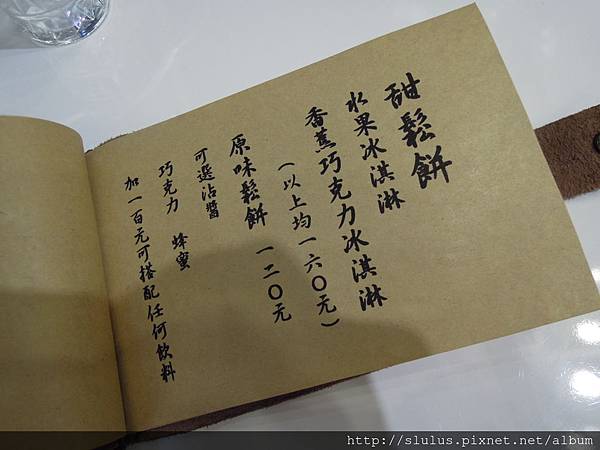 甜鬆餅
水果冰淇淋
香蕉巧克力冰淇淋
（以上均一六〇元）
原味鬆餅 一二〇元
可選沾醬
巧克力 蜂蜜
加一百元可搭配任何飲料
http://slulus.pixnet.net/album